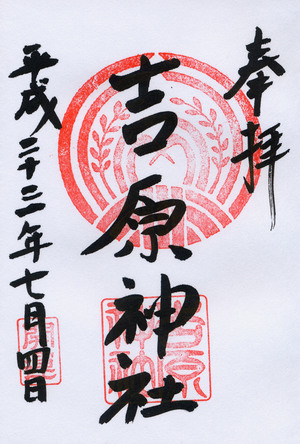 奉拝
吉原神社
平成二十三年七月四日
吉原神社
開運